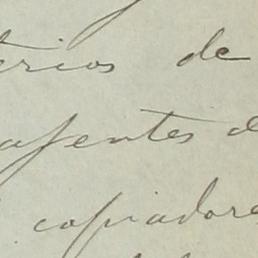 terios de
agentes d
copiadores